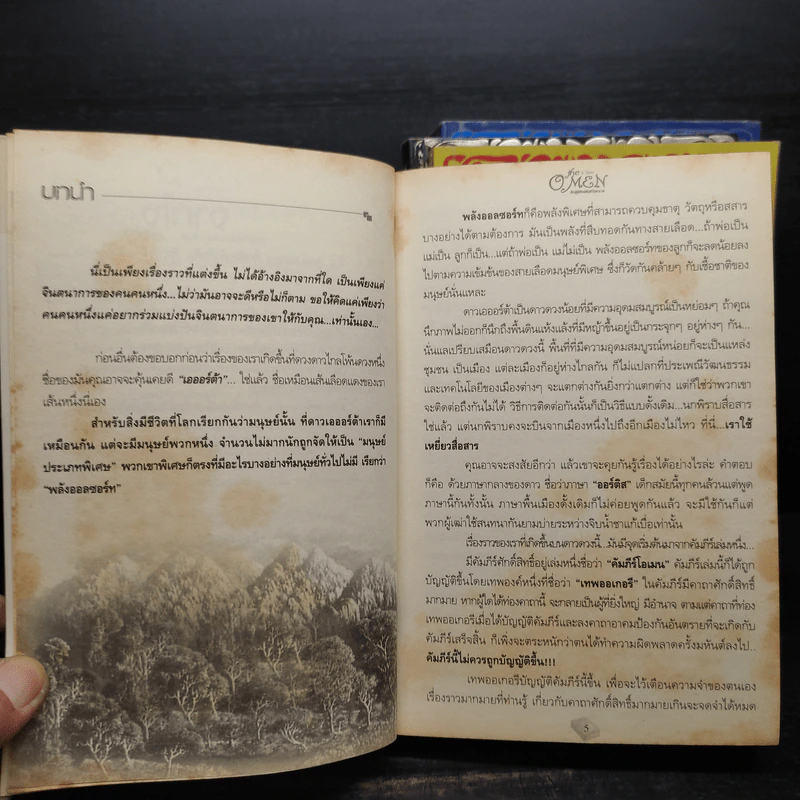 บทนำ
นี่เป็นเพียงเรื่องราวที่แต่งขึ้น ไม่ได้อ้างอิงมาจากที่ใด เป็นเพียงแค่
จินตนาการของคนคนหนึ่ง...ไม่ว่ามันอาจจะดีหรือไม่ก็ตาม ขอให้คิดแค่เพียงว่า
คนคนหนึ่งแค่อยากร่วมแบ่งปันจินตนาการของเขาให้กับคุณ...เท่านั้นเอง...
ก่อนอื่นต้องขอบอกก่อนว่าเรื่องของเราเกิดขึ้นที่ดวงดาวไกลโพ้นดวงหนึ่ง
ชื่อของมันคุณอาจจะคุ้นเคยดี "เอออร์ต้า"... ใช่แล้ว ชื่อเหมือนเส้นเลือดแดงของเรา
เส้นหนึ่งนี่เอง
สำหรับสิ่งมีชีวิตที่โลกเรียกกันว่ามนุษย์นั้น ที่ดาวเอออร์ต้าเราก็มี
เหมือนกัน แต่จะมีมนุษย์พวกหนึ่ง จำนวนไม่มากนักถูกจัดให้เป็น "มนุษย์
ประเภทพิเศษ" พวกเขาพิเศษก็ตรงที่มีอะไรบางอย่างที่มนุษย์ทั่วไปไม่มี เรียกว่า
"พลังออลซอร์ท"
the
OMEN
พลังออลซอร์ทก็คือพลังพิเศษที่สามารถควบคุมธาตุ วัตถุหรือสสาร
บางอย่างได้ตามต้องการ มันเป็นพลังที่สืบทอดกันทางสายเลือด...ถ้าพ่อเป็น
แม่เป็น ลูกก็เป็น...แต่ถ้าพ่อเป็น แม่ไม่เป็น พลังออลซอร์ทของลูกก็จะลดน้อยลง
ไปตามความเข้มข้นของสายเลือดมนุษย์พิเศษ ซึ่งก็วัดกันคล้ายๆ กับเชื้อชาติของ
มนุษย์นั่นแหละ
ดาวเอออร์ต้าเป็นดาวดวงน้อยที่มีความอุดมสมบูรณ์เป็นหย่อมๆ ถ้าคุณ
นึกภาพไม่ออกก็นึกถึงพื้นดินแห้งแล้งที่มีหญ้าขึ้นอยู่เป็นกระจุกๆ อยู่ห่างๆ กัน...
นั่นแลเปรียบเสมือนดาวดวงนี้ พื้นที่ที่มีความอุดมสมบูรณ์หน่อยก็จะเป็นแหล่ง
ชุมชน เป็นเมือง แต่ละเมืองก็อยู่ห่างไกลกัน ก็ไม่แปลกที่ประเพณีวัฒนธรรม
และเทคโนโลยีของเมืองต่างๆ จะแตกต่างกันยิ่งกว่าแตกต่าง แต่ก็ใช่ว่าพวกเขา
จะติดต่อถึงกันไม่ได้ วิธีการติดต่อกันนั้นก็เป็นวิธีแบบดั้งเดิม...นกพิราบสื่อสาร
ใช่แล้ว แต่นกพิราบคงจะบินจากเมืองหนึ่งไปถึงอีกเมืองไม่ไหว ที่นี่...เราใช้
เหยี่ยวสื่อสาร
คุณอาจจะสงสัยอีกว่า แล้วเขาจะคุยกันรู้เรื่องได้อย่างไรล่ะ คำตอบ
ก็คือ ด้วยภาษากลางของดาว ชื่อว่าภาษา "ออร์ติส" เด็กสมัยนี้ทุกคนล้วนแต่พูด
ภาษานี้กันทั้งนั้น ภาษาพื้นเมืองดั้งเดิมก็ไม่ค่อยพูดกันแล้ว จะมีใช้กันก็แต่
พวกผู้เฒ่าใช้สนทนากันยามบ่ายระหว่างจิบน้ำชาแก้เบื่อเท่านั้น
เรื่องราวของเราที่เกิดขึ้นบนดาวดวงนี้...มันมีจุดเริ่มต้นมาจากคัมภีร์เล่มหนึ่ง...
มีคัมภีร์ศักดิ์สิทธิ์อยู่เล่มหนึ่งชื่อว่า "คัมภีร์โอเมน" คัมภีร์เล่มนี้ก็ได้ถูก
บัญญัติขึ้นโดยเทพองค์หนึ่งที่ชื่อว่า "เทพออเกอรี" ในคัมภีร์มีคาถาศักดิ์สิทธิ์
มากมาย หากผู้ใดได้ท่องคาถานี้ จะกลายเป็นผู้ที่ยิ่งใหญ่ มีอำนาจ ตามแต่คาถาที่ท่อง
เทพออเกอรีเมื่อได้บัญญัติคัมภีร์และลงคาถาอาคมป้องกันอันตรายที่จะเกิดกับ
คัมภีร์เสร็จสิ้น ก็เพิ่งจะตระหนักว่าตนได้ทำความผิดพลาดครั้งมหันต์ลงไป..
คัมภีร์นี้ไม่ควรถูกบัญญัติขึ้น!!!
เทพออเกอรีบัญญัติคัมภีร์นี้ขึ้น เพื่อจะไว้เตือนความจำของตนเอง
เรื่องราวมากมายที่ท่านรู้ เกี่ยวกับคาถาศักดิ์สิทธิ์มากมายเกินจะจดจำได้หมด
5